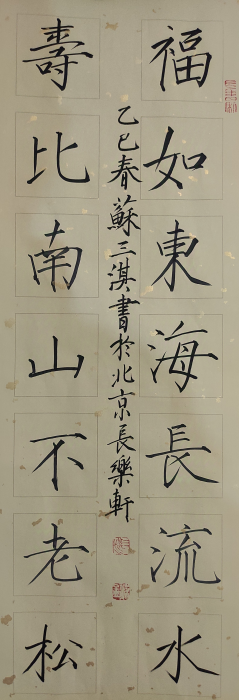 福如東海長流水
壽比南山不老松
乙巳春蘇三淇書於北京長樂軒